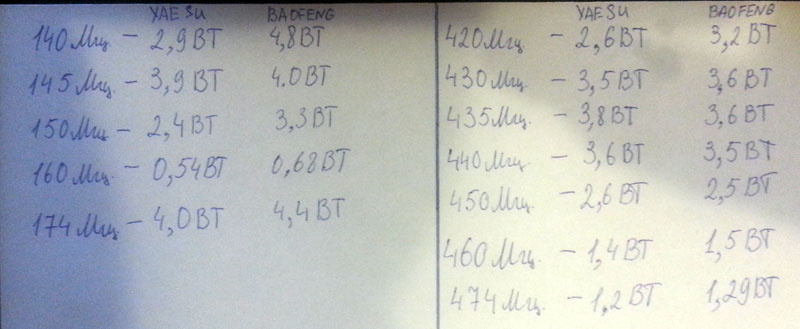 YAESU BAOFENG
140Мгц – 2,9ВТ 4,8ВТ
145Мгц – 3,9ВТ 4.0ВТ
150Мгц – 2,4ВТ 3,3ВТ
160Мгц – 0,54ВТ 0,68ВТ
174Мгц – 4,0ВТ 4,4ВТ
YAESU BAOFENG
420Мгц – 2,6ВТ 3,2ВТ
430Мгц – 3,5ВТ 3,6ВТ
435Мгц – 3,8ВТ 3,6ВТ
440Мгц – 3,6ВТ 3,5ВТ
450Мгц – 2,6ВТ 2,5ВТ
460Мгц – 1,4ВТ 1,5ВТ
474Мгц – 1,2ВТ 1,29ВТ